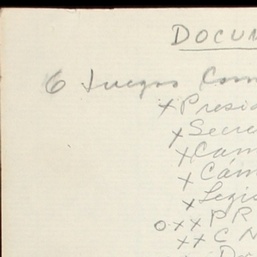 DOCUM
6 Juegos Com
x Presid
x Secre
x Cam
x Cám
x Legis
o x x P R
x x C N